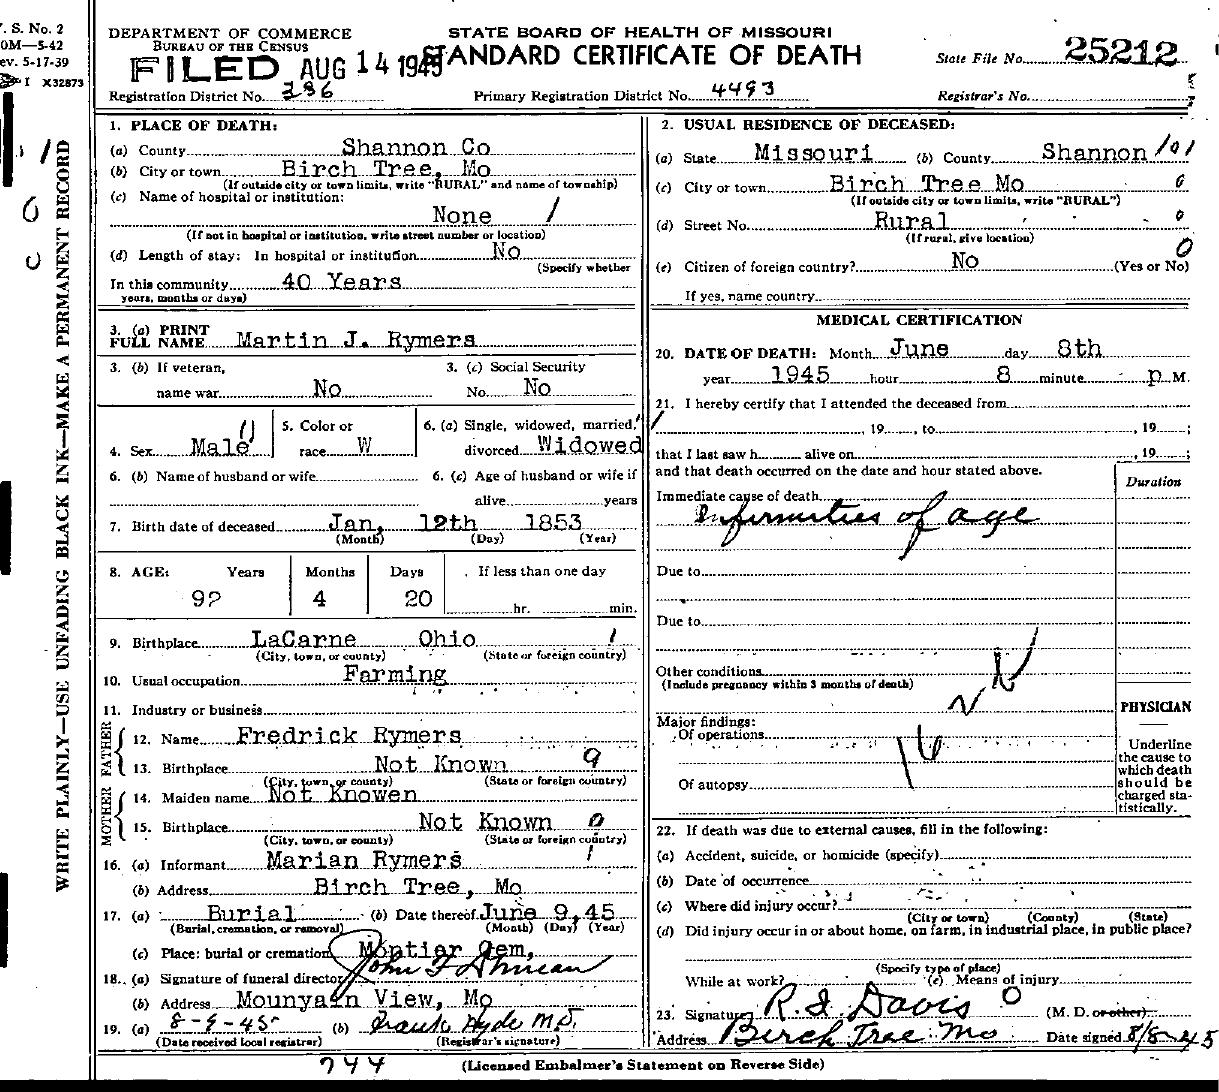 V. S. No. 2
DEPARTMENT OF COMMERCE
STATE BOARD OF HEALTH OF MISSOURI
0M—5-42
BUREAU OF THE CENSUS
STANDARD CERTIFICATE OF DEATH
ev. 5-17-39
FILED AUG 14 1945
State File No. 25212
I X32873
Registration District No. 386
Primary Registration District No. 4493
Registrar's No.
WRITE PLAINLY—USE UNFADING BLACK INK—MAKE A PERMANENT RECORD
1. PLACE OF DEATH:
(a) County Shannon Co
(b) City or town Birch Tree, Mo
(If outside city or town limits, write "RURAL" and name of township)
(c) Name of hospital or institution:
None 1
(If not in hospital or institution, write street number or location)
(d) Length of stay: In hospital or institution No
(Specify whether
In this community 40 Years
years, months or days)
3. (a) PRINT
FULL NAME Martin J. Rymers
3. (b) If veteran,
name war No
3. (c) Social Security
No. No
4. Sex Male
5. Color or
race W
6. (a) Single, widowed, married,
divorced Widowed
6. (b) Name of husband or wife
6. (c) Age of husband or wife if
alive years
7. Birth date of deceased Jan, 12th 1853
(Month) (Day) (Year)
8. AGE: Years Months Days If less than one day
92 4 20 hr. min.
9. Birthplace LaCarne Ohio 1
(City, town, or county) (State or foreign country)
10. Usual occupation Farming
11. Industry or business
FATHER
12. Name Fredrick Rymers
13. Birthplace Not Known 9
(City, town, or county) (State or foreign country)
MOTHER
14. Maiden name Not Knowen
15. Birthplace Not Known 0
(City, town, or county) (State or foreign country)
16. (a) Informant Marian Rymers
(b) Address Birch Tree, Mo
17. (a) Burial (b) Date thereof June 9,45
(Burial, cremation, or removal) (Month) (Day) (Year)
(c) Place: burial or cremation Montier Cem,
18. (a) Signature of funeral director John F Duncan
(b) Address Mounyain View, Mo
19. (a) 8-9-45 (b) Frank Hyde M.D.
(Date received local registrar) (Registrar's signature)
744
2. USUAL RESIDENCE OF DECEASED:
(a) State Missouri (b) County Shannon 101
(c) City or town Birch Tree Mo 6
(If outside city or town limits, write "RURAL")
(d) Street No. Rural 0
(If rural, give location)
0
(e) Citizen of foreign country? No (Yes or No)
If yes, name country
MEDICAL CERTIFICATION
20. DATE OF DEATH: Month June day 8th
year 1945 hour 8 minute p M.
21. I hereby certify that I attended the deceased from
, 19 , to , 19 ;
that I last saw h alive on , 19 ;
and that death occurred on the date and hour stated above.
Duration
Immediate cause of death
Infirmities of age
Due to
Due to
Other conditions
(Include pregnancy within 3 months of death)
Major findings:
Of operations
Of autopsy
PHYSICIAN
Underline
the cause to
which death
should be
charged sta-
tistically.
22. If death was due to external causes, fill in the following:
(a) Accident, suicide, or homicide (specify)
(b) Date of occurrence
(c) Where did injury occur?
(City or town) (County) (State)
(d) Did injury occur in or about home, on farm, in industrial place, in public place?
(Specify type of place)
While at work? (e) Means of injury
23. Signature R. I. Davis (M. D. or other)
Address Birch Tree Mo Date signed 8/8-45
(Licensed Embalmer's Statement on Reverse Side)